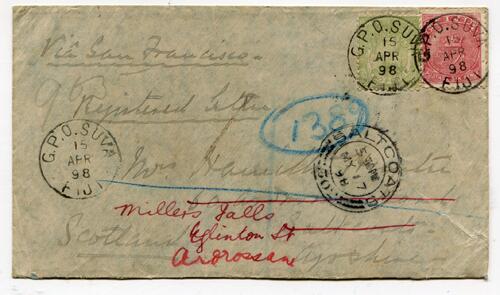 G.P.O. SUVA
15
APR
98
FIJI
G.P.O. SUVA
15
APR
98
FIJI
Via San Francisco
Registered Letter
138
G.P.O. SUVA
15
APR
98
FIJI
SALTCOATS
MY 17
98
Mrs
Millers Falls
Eglinton St
Ardrossan
Scotland
Ayrshire